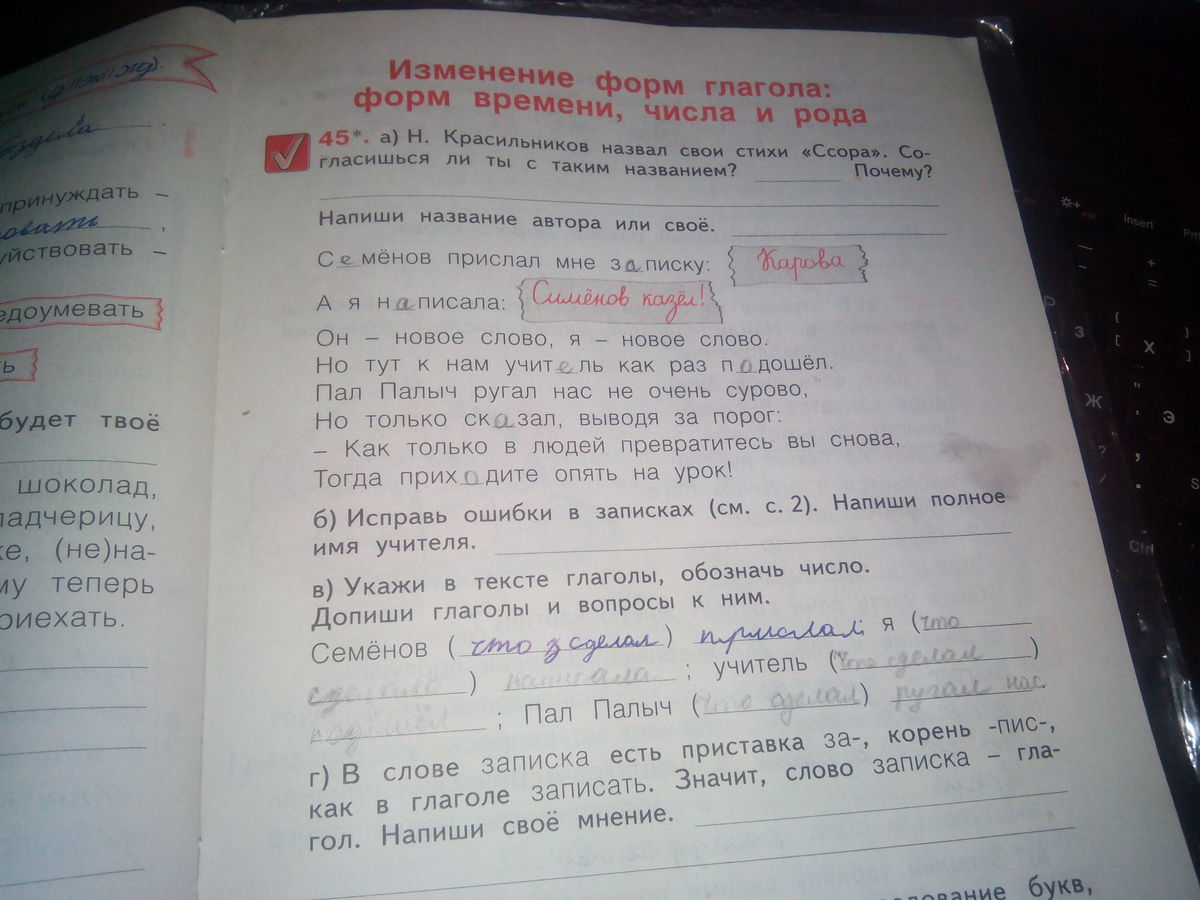 Изменение форм глагола:
форм времени, числа и рода
45*. а) Н. Красильников назвал свои стихи «Ссора». Со-
гласишься ли ты с таким названием? Почему?
Напиши название автора или своё.
Семёнов прислал мне записку: Карова
А я написала: Симёнов казёл!
Он – новое слово, я – новое слово.
Но тут к нам учитель как раз подошёл.
Пал Палыч ругал нас не очень сурово,
Но только сказал, выводя за порог:
– Как только в людей превратитесь вы снова,
Тогда приходите опять на урок!
б) Исправь ошибки в записках (см. с. 2). Напиши полное
имя учителя.
в) Укажи в тексте глаголы, обозначь число.
Допиши глаголы и вопросы к ним.
Семёнов (что сделал) прислал; я (что
сделала) написала ; учитель (что сделал)
подошёл ; Пал Палыч (что сделал) ругал нас
г) В слове записка есть приставка за-, корень -пис-,
как в глаголе записать. Значит, слово записка – гла-
гол. Напиши своё мнение.
букв,
принуждать –
овать ,
уйствовать –
едоумевать
ть
будет твоё
шоколад,
падчерицу,
ке, (не)на-
му теперь
риехать.
Insert
Ctrl